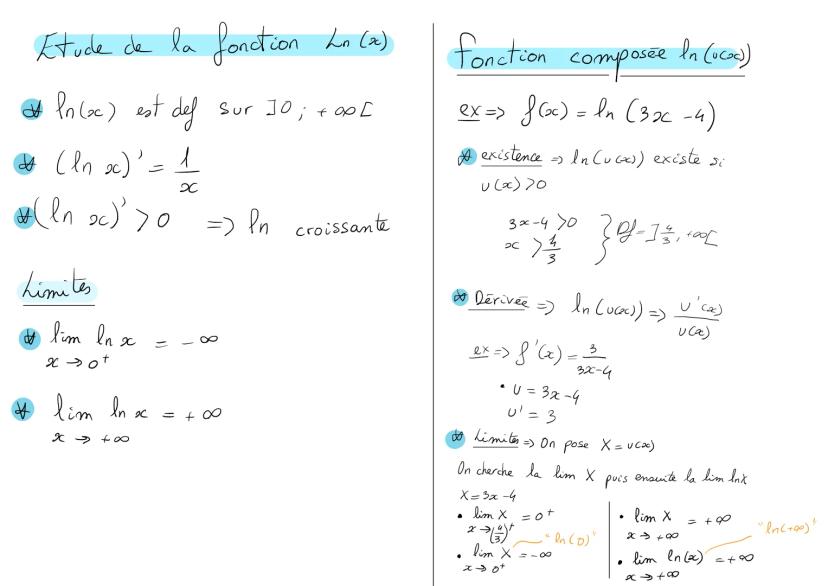 Etude de la fonction Ln (x)
ln(x) est def sur ]0 ; +∞[
(ln x)' = 1/x
(ln x)' > 0 => ln croissante
Limites
lim ln x = -∞
x → 0⁺
lim ln x = +∞
x → +∞
fonction composée ln(u(x))
ex => f(x) = ln (3x - 4)
existence => ln(u(x)) existe si
u(x) > 0
3x-4 > 0
x > 4/3 } Df = ]4/3, +∞[
Dérivée => ln(u(x)) => u'(x)/u(x)
ex => f'(x) = 3/(3x-4)
• u = 3x-4
u' = 3
Limites => On pose X = u(x)
On cherche la lim X puis ensuite la lim ln X
X = 3x-4
• lim X = 0⁺
x → (4/3)⁺
"ln(0)"
• lim X = -∞
x → 0⁺
• lim X = +∞
x → +∞
"ln(+∞)"
• lim ln(x) = +∞
x → +∞